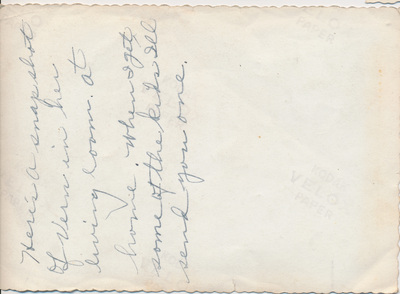 Here's a snapshot
of Vern in her
living room. at
home. When I get
some of the kids I'll
send you one.
VELO
PAPER
PAPER